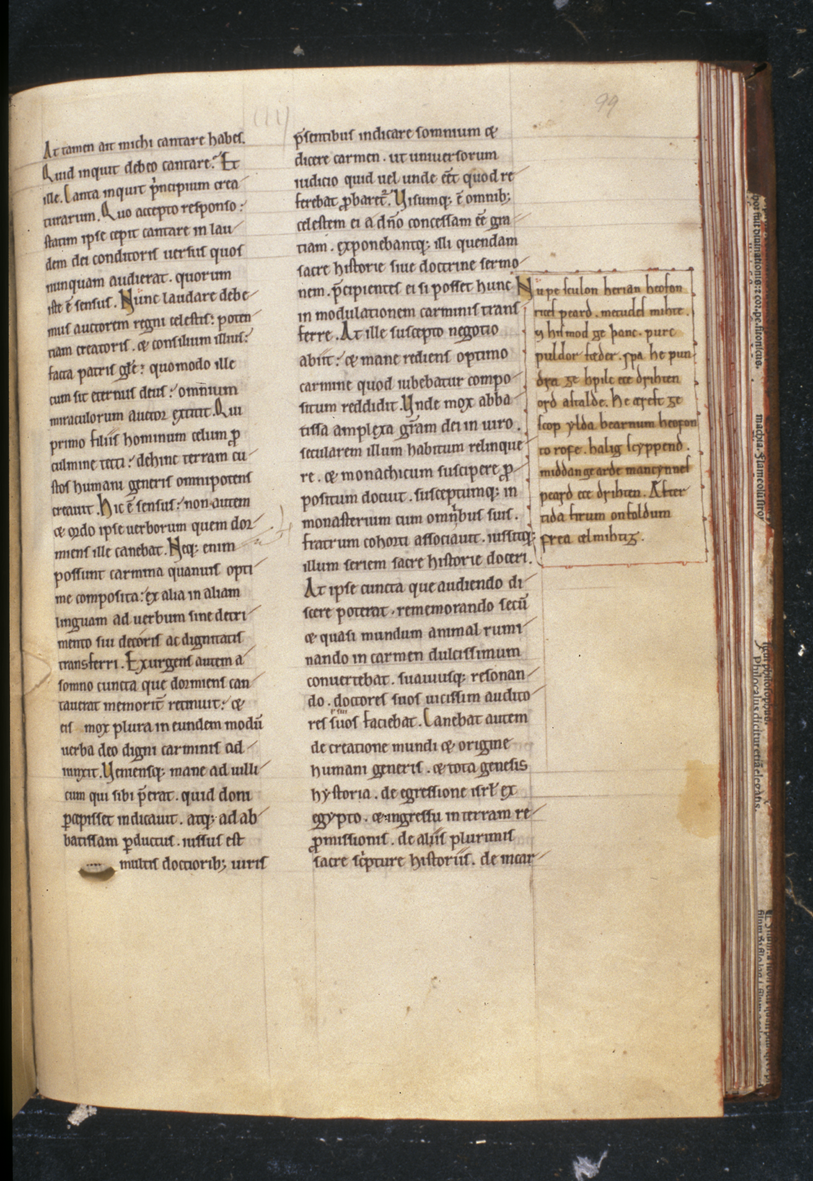 99
At tamen ait michi cantare habes.
Quid inquit debeo cantare? Et
ille. Canta inquit p̄ncipium crea
turarum. Quo accepto responso:
statim ipse cepit cantare in lau
dem dei conditoris uersus quos
nunquam audierat. quorum
iste ē sensus. Nunc laudare debe
mus auctorem regni celestis: poten
tiam creatoris. & consilium illius:
facta patris glīe: quomodo ille
cum sit eternus deus: omnium
miraculorum auctor extitit. Qui
primo filiis hominum celum ꝓ
culmine tecti: dehinc terram cu
stos humani generis omnipotens
creauit. Hic ē sensus: non autem
& ordo ipse uerborum quem dor
miens ille canebat. Neq; enim
possunt carmina quamuis opti
me composita: ex alia in aliam
linguam ad uerbum sine detri
mento sui decoris ac dignitatis
transferri. Exurgens autem a
somno cuncta que dormiens can
tauerat memorit̄ retinuit: &
eis mox plura in eundem modū
uerba deo digni carminis ad
iunxit. Ueniensq; mane ad uilli
cum qui sibi p̄erat. quid doni
ꝑcepisset indicauit. atq; ad ab
batissam ꝑductus. iussus est
multis doctiorib; uiris
p̄sentibus indicare somnium &
dicere carmen. ut uniuersorum
iudicio quid uel unde eēt quod re
ferebat ꝓbaret̄. Uisumq; ē omnib;
celestem ei a dn̄o concessam eē gra
tiam. exponebantq; illi quendam
sacre historie siue doctrine sermo
nem. p̄cipientes ei si posset hunc
in modulationem carminis trans
ferre. At ille suscepto negotio
abiit: & mane rediens optimo
carmine quod iubebatur compo
situm reddidit. Unde mox abba
tissa amplexa gr̄am dei in uiro.
secularem illum habitum relinque
re. & monachicum suscipere ꝓ
positum docuit. susceptumq; in
monasterium cum omnibus suis.
fratrum cohorti associauit. iussitq;
illum seriem sacre historie doceri.
At ipse cuncta que audiendo di
scere poterat. rememorando secū
& quasi mundum animal rumi
nando in carmen dulcissimum
conuertebat. suauiusq; resonan
do. doctores suos uicissim audito
res suos faciebat. Canebat autem
de creatione mundi & origine
humani generis. & tota genesis
hystoria. de egressione isrl̄ ex
egypto. & ingressu in terram re
ꝓmissionis. de aliis plurimis
sacre sc̄pture historiis. de incar
Nu ƿe sculon herian heofon
rices ƿeard. metudes mihte.
⁊ his mod ge þanc. ƿurc
ƿuldor fæder. sƿa he ƿun
dra ge hƿilc ece drihten
ord astalde. he ærest ge
scop ylda bearnum heofon
to rofe. halig scyppend.
middangearde mancynnes
ƿeard ece drihten. Æfter
tida firum on foldum
frea ælmihtig.